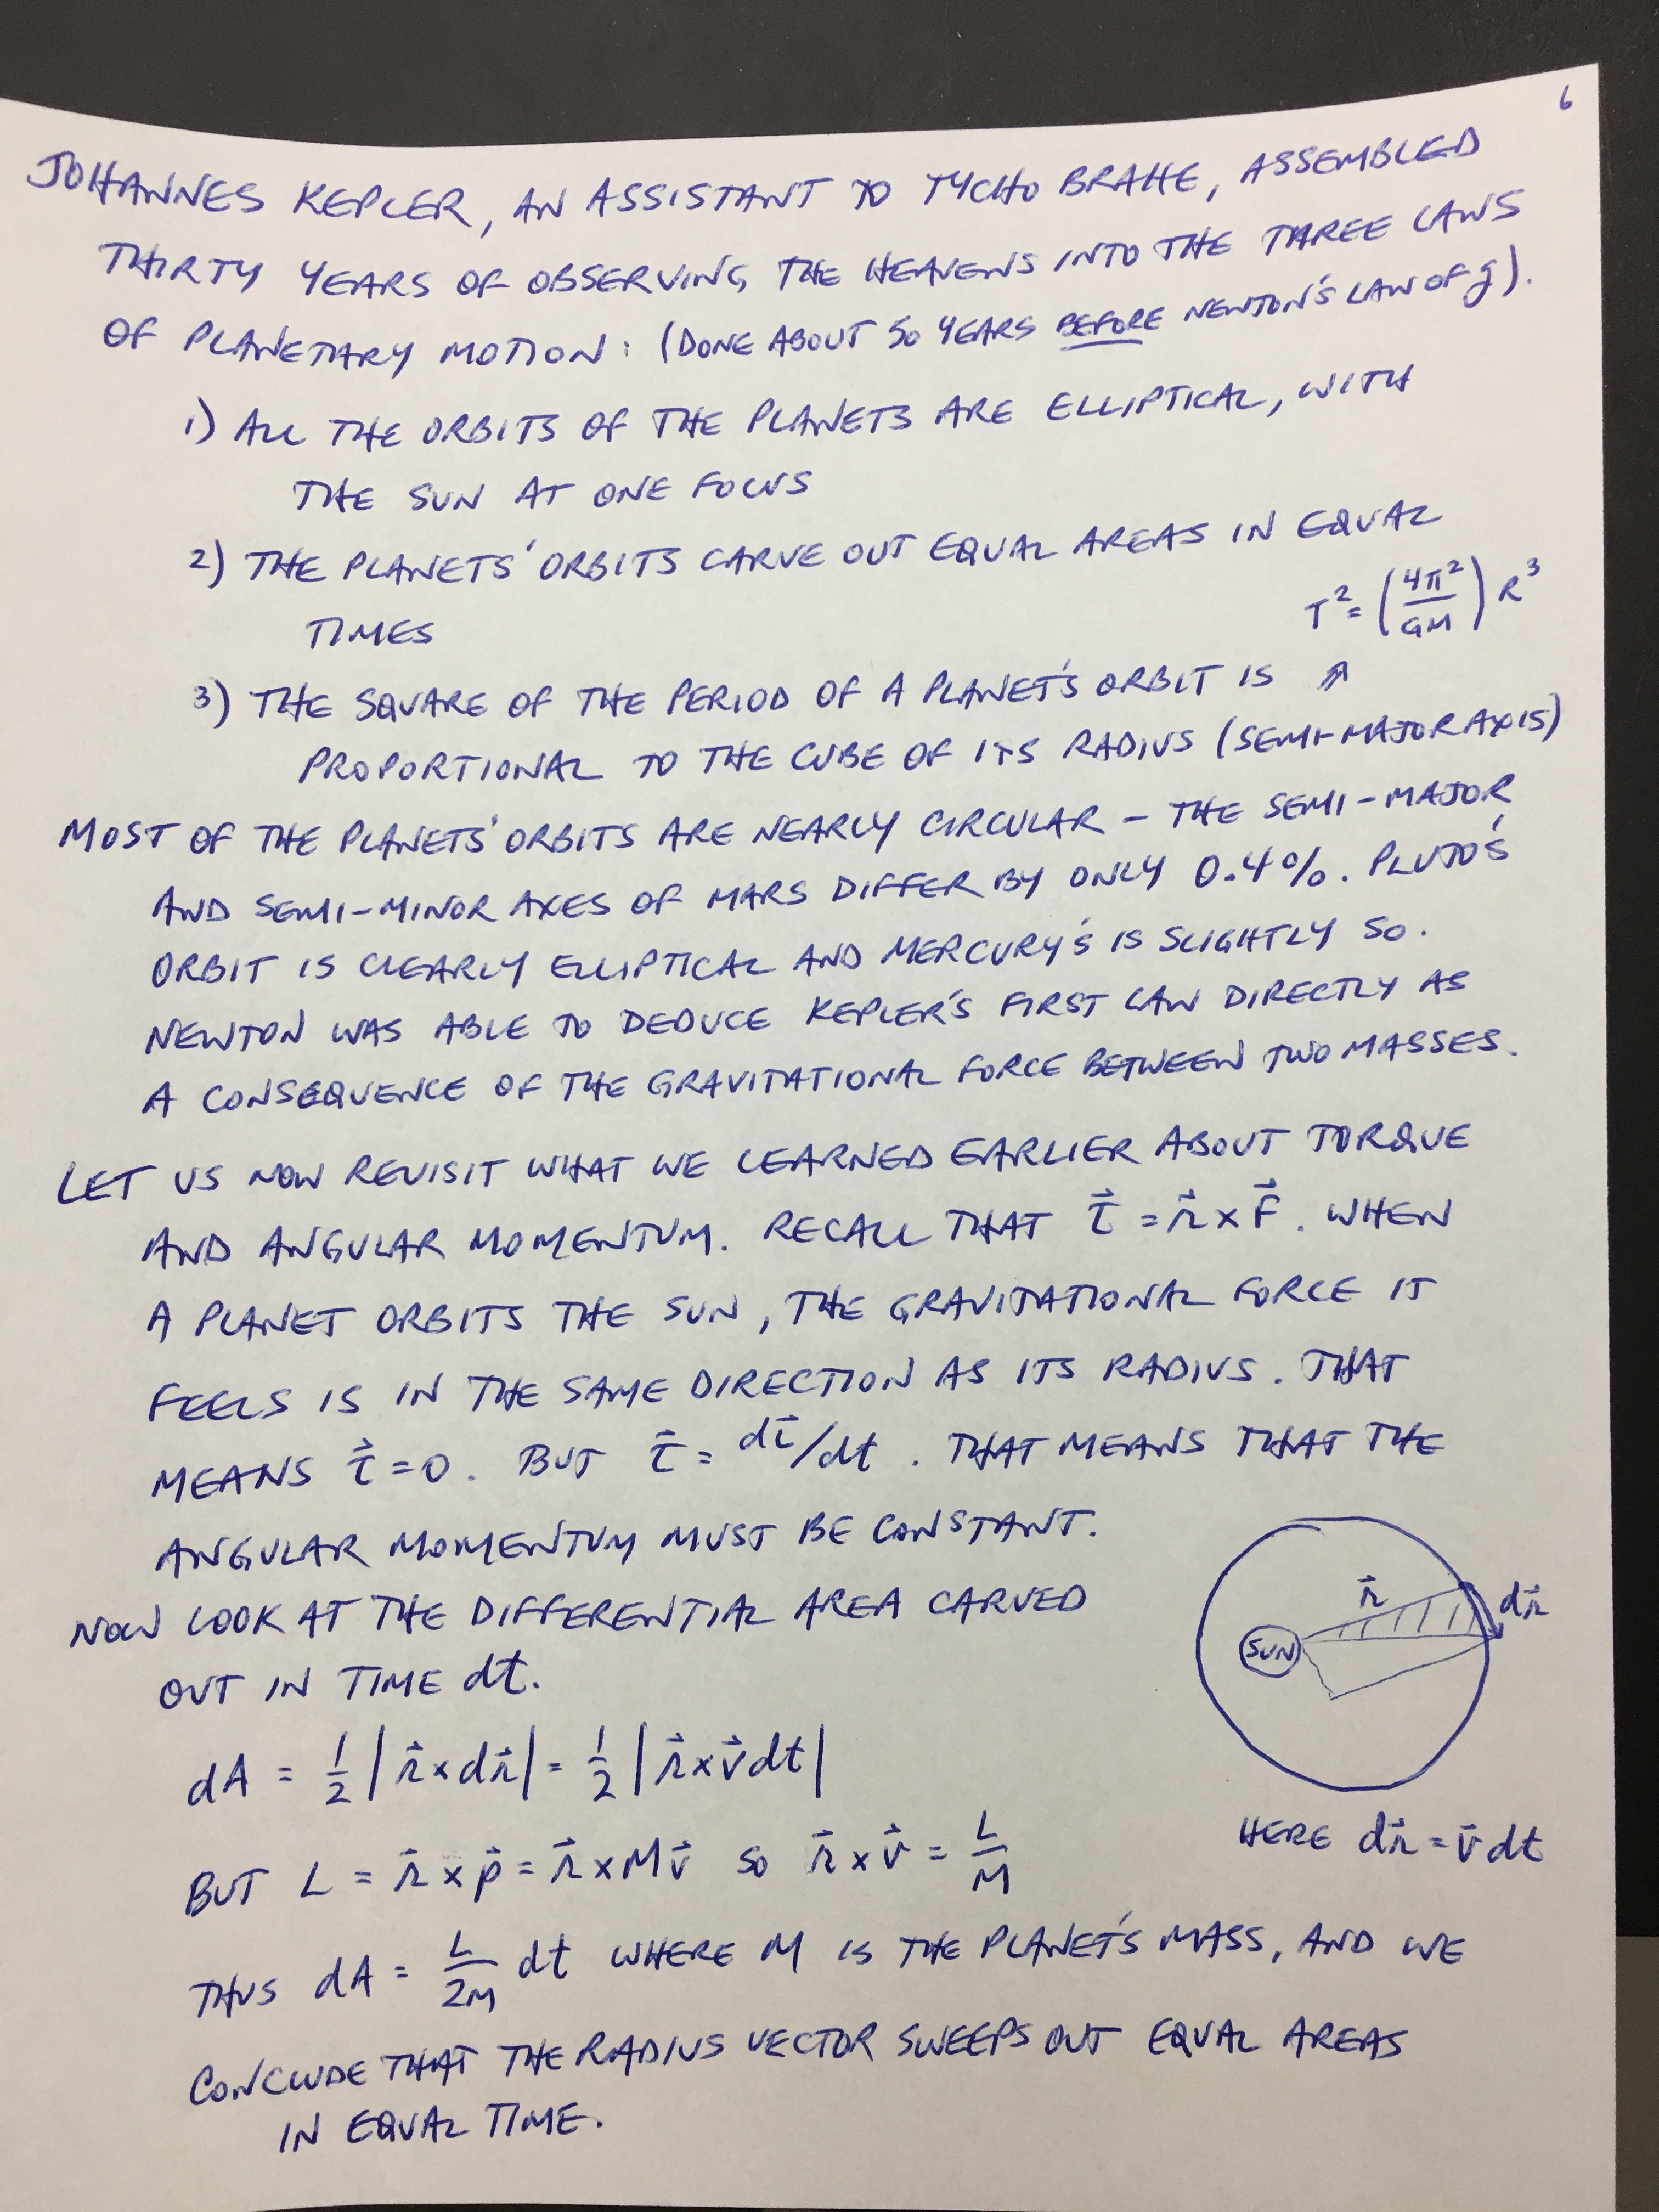 6
JOHANNES KEPLER, AN ASSISTANT TO TYCHO BRAHE, ASSEMBLED
THIRTY YEARS OF OBSERVING THE HEAVENS INTO THE THREE LAWS
OF PLANETARY MOTION: (DONE ABOUT 50 YEARS BEFORE NEWTON'S LAW OF g).
1) ALL THE ORBITS OF THE PLANETS ARE ELLIPTICAL, WITH
THE SUN AT ONE FOCUS
2) THE PLANETS' ORBITS CARVE OUT EQUAL AREAS IN EQUAL
TIMES
T² = (4π²/GM) R³
3) THE SQUARE OF THE PERIOD OF A PLANET'S ORBIT IS ⇗
PROPORTIONAL TO THE CUBE OF ITS RADIUS (SEMI-MAJOR AXIS)
MOST OF THE PLANETS' ORBITS ARE NEARLY CIRCULAR - THE SEMI-MAJOR
AND SEMI-MINOR AXES OF MARS DIFFER BY ONLY 0.4%. PLUTO'S
ORBIT IS CLEARLY ELLIPTICAL AND MERCURY'S IS SLIGHTLY SO.
NEWTON WAS ABLE TO DEDUCE KEPLER'S FIRST LAW DIRECTLY AS
A CONSEQUENCE OF THE GRAVITATIONAL FORCE BETWEEN TWO MASSES.
LET US NOW REVISIT WHAT WE LEARNED EARLIER ABOUT TORQUE
AND ANGULAR MOMENTUM. RECALL THAT τ⃗ = r⃗ × F⃗. WHEN
A PLANET ORBITS THE SUN, THE GRAVITATIONAL FORCE IT
FEELS IS IN THE SAME DIRECTION AS ITS RADIUS. THAT
MEANS τ⃗ = 0. BUT τ⃗ = dL⃗/dt. THAT MEANS THAT THE
ANGULAR MOMENTUM MUST BE CONSTANT.
NOW LOOK AT THE DIFFERENTIAL AREA CARVED
OUT IN TIME dt.
r⃗
dr⃗
SUN
dA = 1/2 |r⃗ × dr⃗| = 1/2 |r⃗ × v⃗ dt|
HERE dr⃗ = v⃗ dt
BUT L = r⃗ × p⃗ = r⃗ × Mv⃗ SO r⃗ × v⃗ = L/M
THUS dA = L/2M dt WHERE M IS THE PLANET'S MASS, AND WE
CONCLUDE THAT THE RADIUS VECTOR SWEEPS OUT EQUAL AREAS
IN EQUAL TIME.